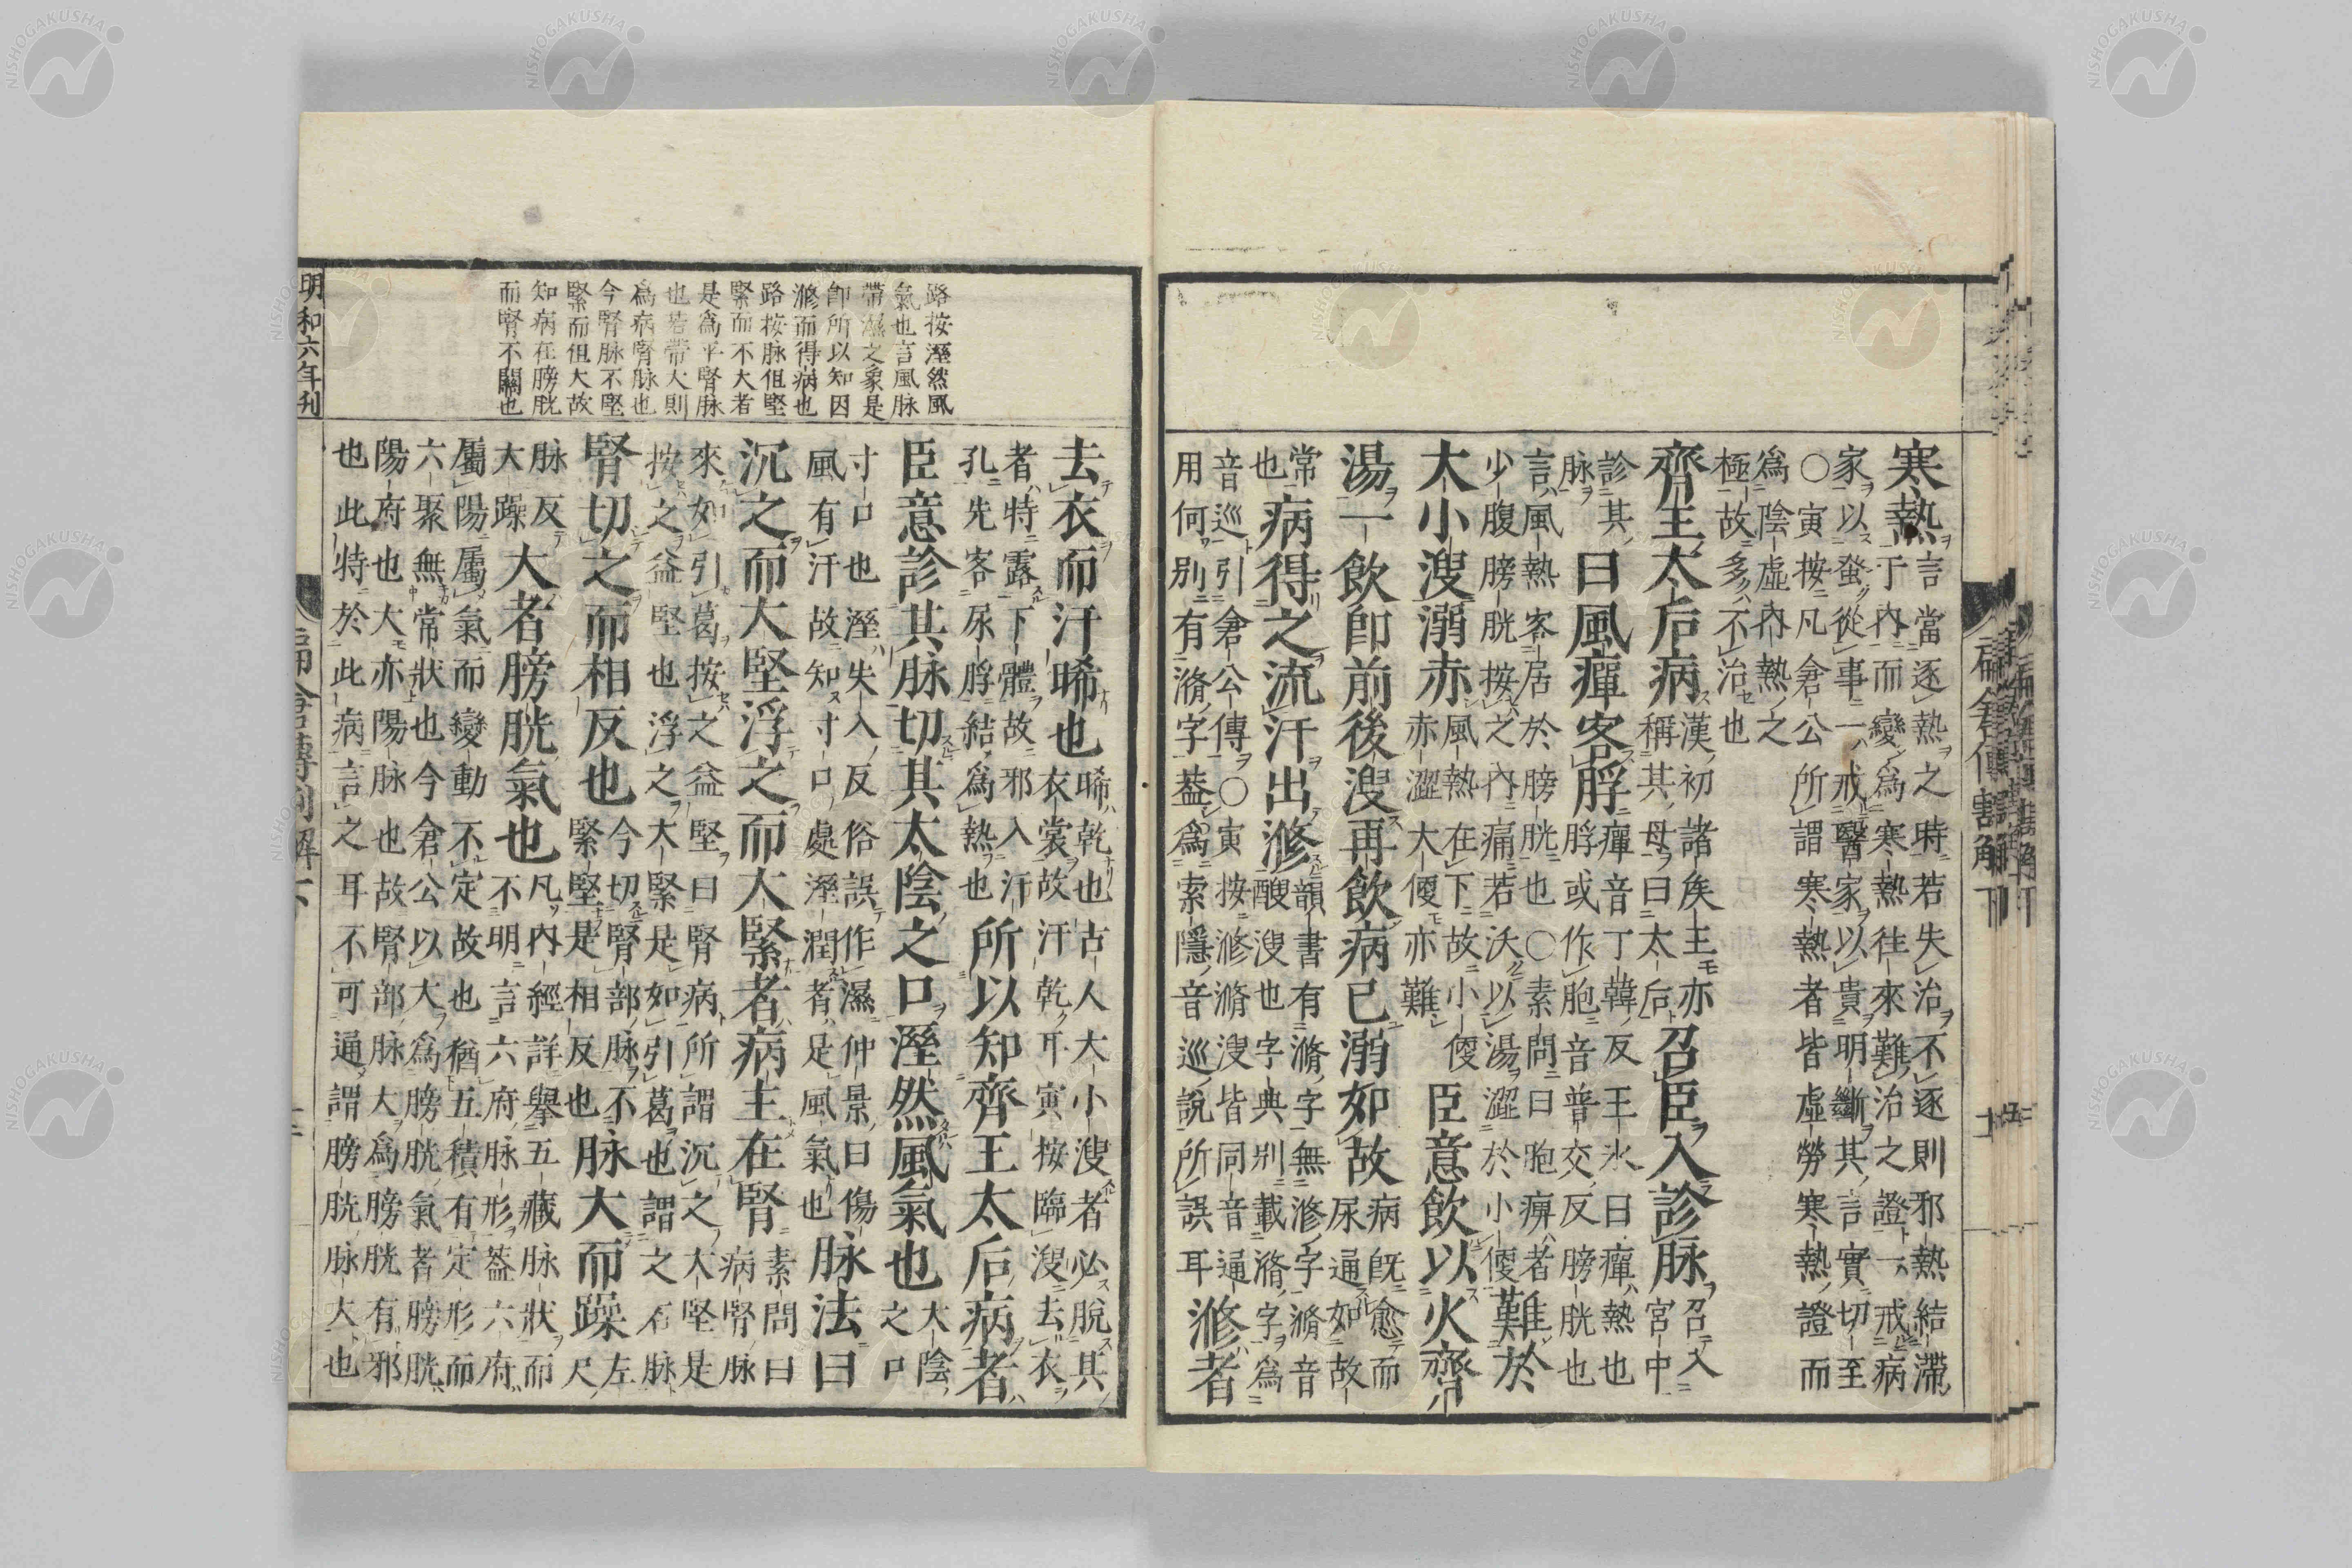 寒熱
言當逐熱之時若失治不逐則邪熱結滯
于內而變爲寒熱往來難治之證一戒病
家以蛩從事一戒醫家以貴明斷其言實切至
〇寅按凡倉公所謂寒熱者皆虛勞寒熱證而
爲陰虛內熱之
極故多不治也
齊王太后病
漢初諸侯王亦
稱其母曰太后
召臣入診脉
召入
宮中
診其
脉
曰風癉客脬
癉音丁韓反王氷曰癉熱也
脬或作胞音普交反膀胱也
言風熱客居於膀胱也〇素問曰胞痹者
少腹膀胱按之內痛若沃以湯澀於小便
難於
大小溲溺赤
風熱在下故小便
赤澀大便亦難
臣意飲以火齊
湯一飲卽前後溲再飲病已溺如故
病旣愈而
尿通如故
常
也
病得之流汗出滫
韻書有滫字無滫字滫音
醙溲也字典別載滫字爲
音巡引倉公傳〇寅按滫滫溲皆同音通
用何別有滫字蓋爲索隱音巡說所誤耳
滫者
路按溼然風
氣也言風脉
帶濕之象是
卽所以知因
滫而得病也
路按脉但堅
緊而不大者
是爲平腎脉
也若帶大則
爲病腎脉也
今腎脉不堅
緊而但大故
知病在膀胱
而腎不關也
去衣而汗晞也
晞乾也古人大小溲者必脫其
衣裳故汗乾耳寅按臨溲去衣
者特露下體故邪入汗
孔先客尿脬結爲熱也
所以知齊王太后病者
臣意診其脉切其太陰之口溼然風氣也
大陰
之口
寸口也溼失入反俗誤作濕仲景曰傷
風有汗故知寸口處溼潤者是風氣也
脉法曰
沉之而大堅浮之而大緊者病主在腎
素問曰
病腎脉
來如引葛按之益堅曰腎病所謂沉之大堅是
按之益堅也浮之大緊是如引葛也謂之石脉
腎切之而相反也
今切腎部脉不
緊堅是相反也
脉大而躁
左
尺
脉反
大躁
大者膀胱氣也
凡內經詳擧五藏脉狀而
不明言六府脉形蓋六府
屬陽屬氣而變動不定故也猶五積有定形而
六聚無常狀也今倉公以大爲膀胱氣者膀胱
陽府也大亦陽脉也故腎部脉大爲膀胱有邪
也此特於此病言之耳不可通謂膀胱脉大也
明和六年刊